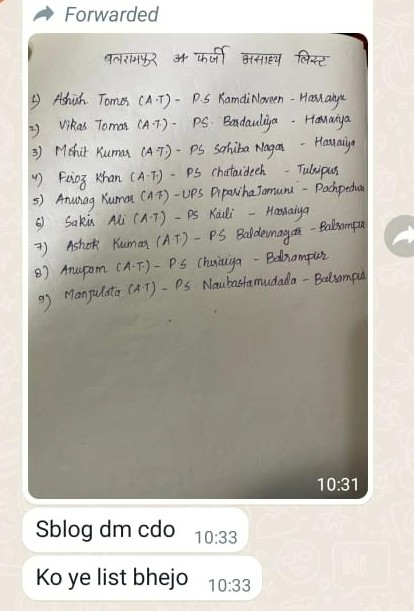 Forwarded
बलरामपुर के फर्जी असाध्य लिस्ट
1) Ashish Tomer (A.T) - P.S Kamdi Naveen - Harraiya
2) Vikas Tomar (A.T) - PS. Bardauliya - Harraiya
3) Mohit Kumar (A.T) - PS Sahiba Nagar - Harraiya
4) Firoz Khan (A.T) - PS Chataideeh - Tulsipur
5) Anurag Kumar (A.T) - UPS Pipariha Jamuni - Pachpedwa
6) Sakir Ali (A.T) - PS Kaili - Harraiya
7) Ashok Kumar (A.T) - P.S Baldevnagar - Balrampur
8) Anupam (A.T) - P.S Chiraiya - Balrampur
9) Manjulata (A.T) - P.S Naubastamudada - Balrampur
10:31
Sblog dm cdo 10:33
Ko ye list bhejo 10:33